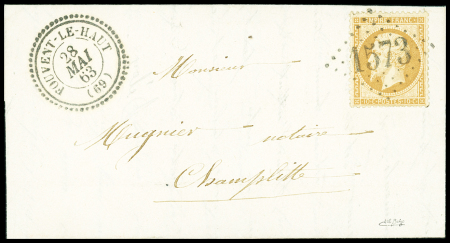 FOUVENT-LE-HAUT
28
MAI
63
(69)
EMPIRE FRANC
1573
10c POSTES 10c
Monsieur
Mugnier notaire
Champlitte